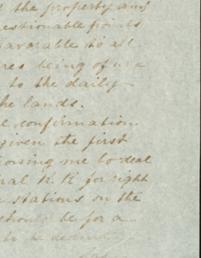 the property and
questionable points
favorable to all
being of use
to the daily
the lands.
confirmation
given the first
me to deal
R. R. for right
stations on the
should be for a